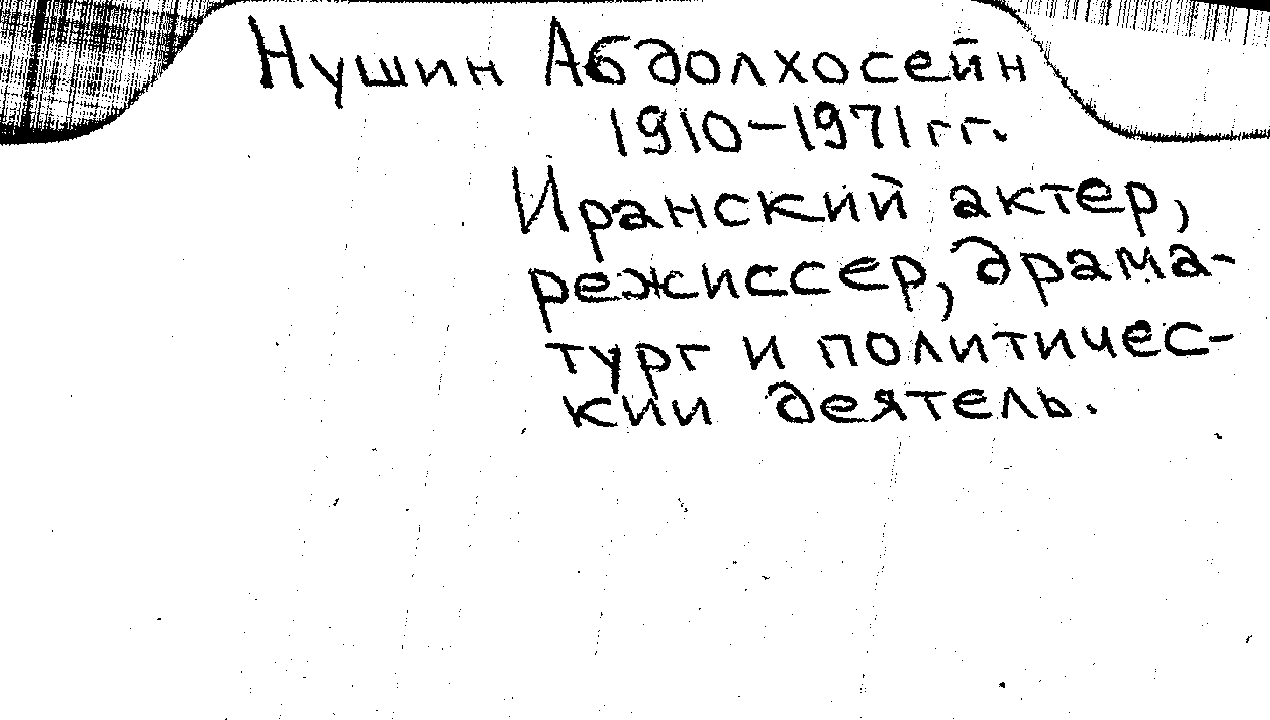 Нушин Абдолхосейн
1910-1971 гг.
Иранский актер,
режиссер, драма-
тург и политичес-
кии деятель.